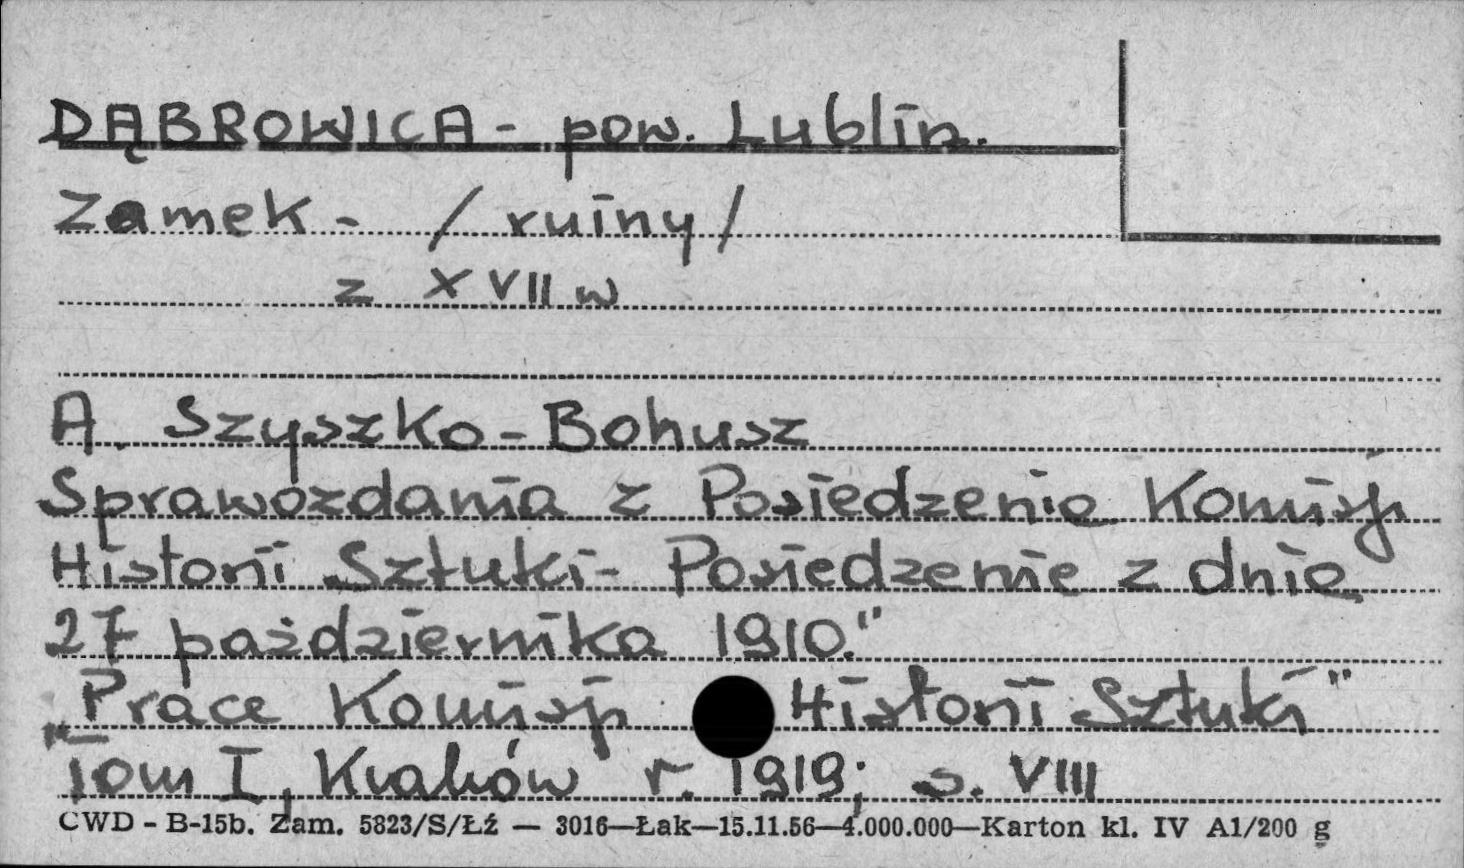 DĄBROWICA - pow. Lublin.
Zamek - /ruiny/
z XVII w
A. Szyszko-Bohusz
Sprawozdania z Posiedzenia Komisji
Historii Sztuki - Posiedzenie z dnia
27 października 1910."
„Prace Komisji Historii Sztuki"
Tom I, Kraków r. 1919; s. VIII
CWD - B-15b. Zam. 5823/S/Łź — 3016—Łak—15.11.56—4.000.000—Karton kl. IV A1/200 g